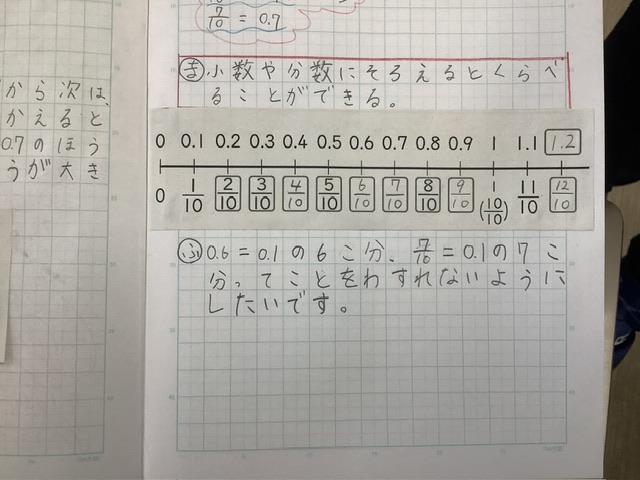 7/10 = 0.7
から次は、
かえると
0.7のほう
うが大き
ま 小数や分数にそろえるとくらべ
ることができる。
0 0.1 0.2 0.3 0.4 0.5 0.6 0.7 0.8 0.9 1 1.1 1.2
0 1/10 2/10 3/10 4/10 5/10 6/10 7/10 8/10 9/10 1 (10/10) 11/10 12/10
ふ 0.6=0.1の6こ分、7/10=0.1の7こ
分、てことをわすれないように
したいです。